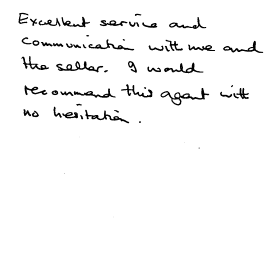 Excellent service and
communication with me and
the seller. I would
recommend this agent with
no hesitation.